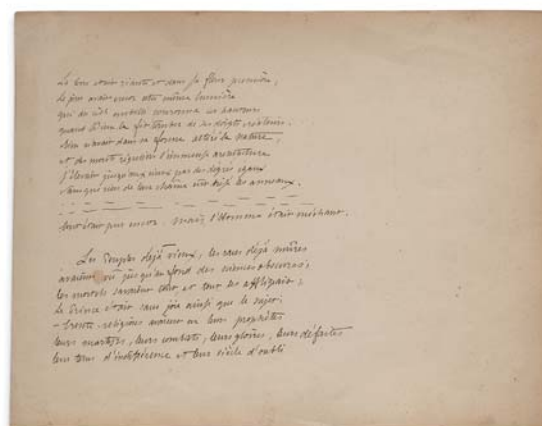 La terre était riante et dans sa fleur première,
Le jour avait encor cette même lumière
qui du ciel embelli couronna les hauteurs
quand Dieu la fit tomber de ses doigts créateurs.
Rien n'avait dans sa forme altéré la nature,
et des monts réguliers l'immense architecture
s'élevait jusqu'aux cieux par ses degrés égaux
sans que rien de leur chaîne eût brisé les anneaux.
tout était pur encor. mais l'homme était méchant.
Les Peuples déjà vieux, les races déjà mûres
avaient vu jusqu'au fond des sciences obscures ;
les mortels savaient tout et tout les affligeait ;
Le Prince était sans joie ainsi que le sujet ;
- trente religions avaient eu leurs prophètes
leurs martyrs, leurs combats, leurs gloires, leurs défaites
leur tems d'indifférence et leur siècle d'oubli